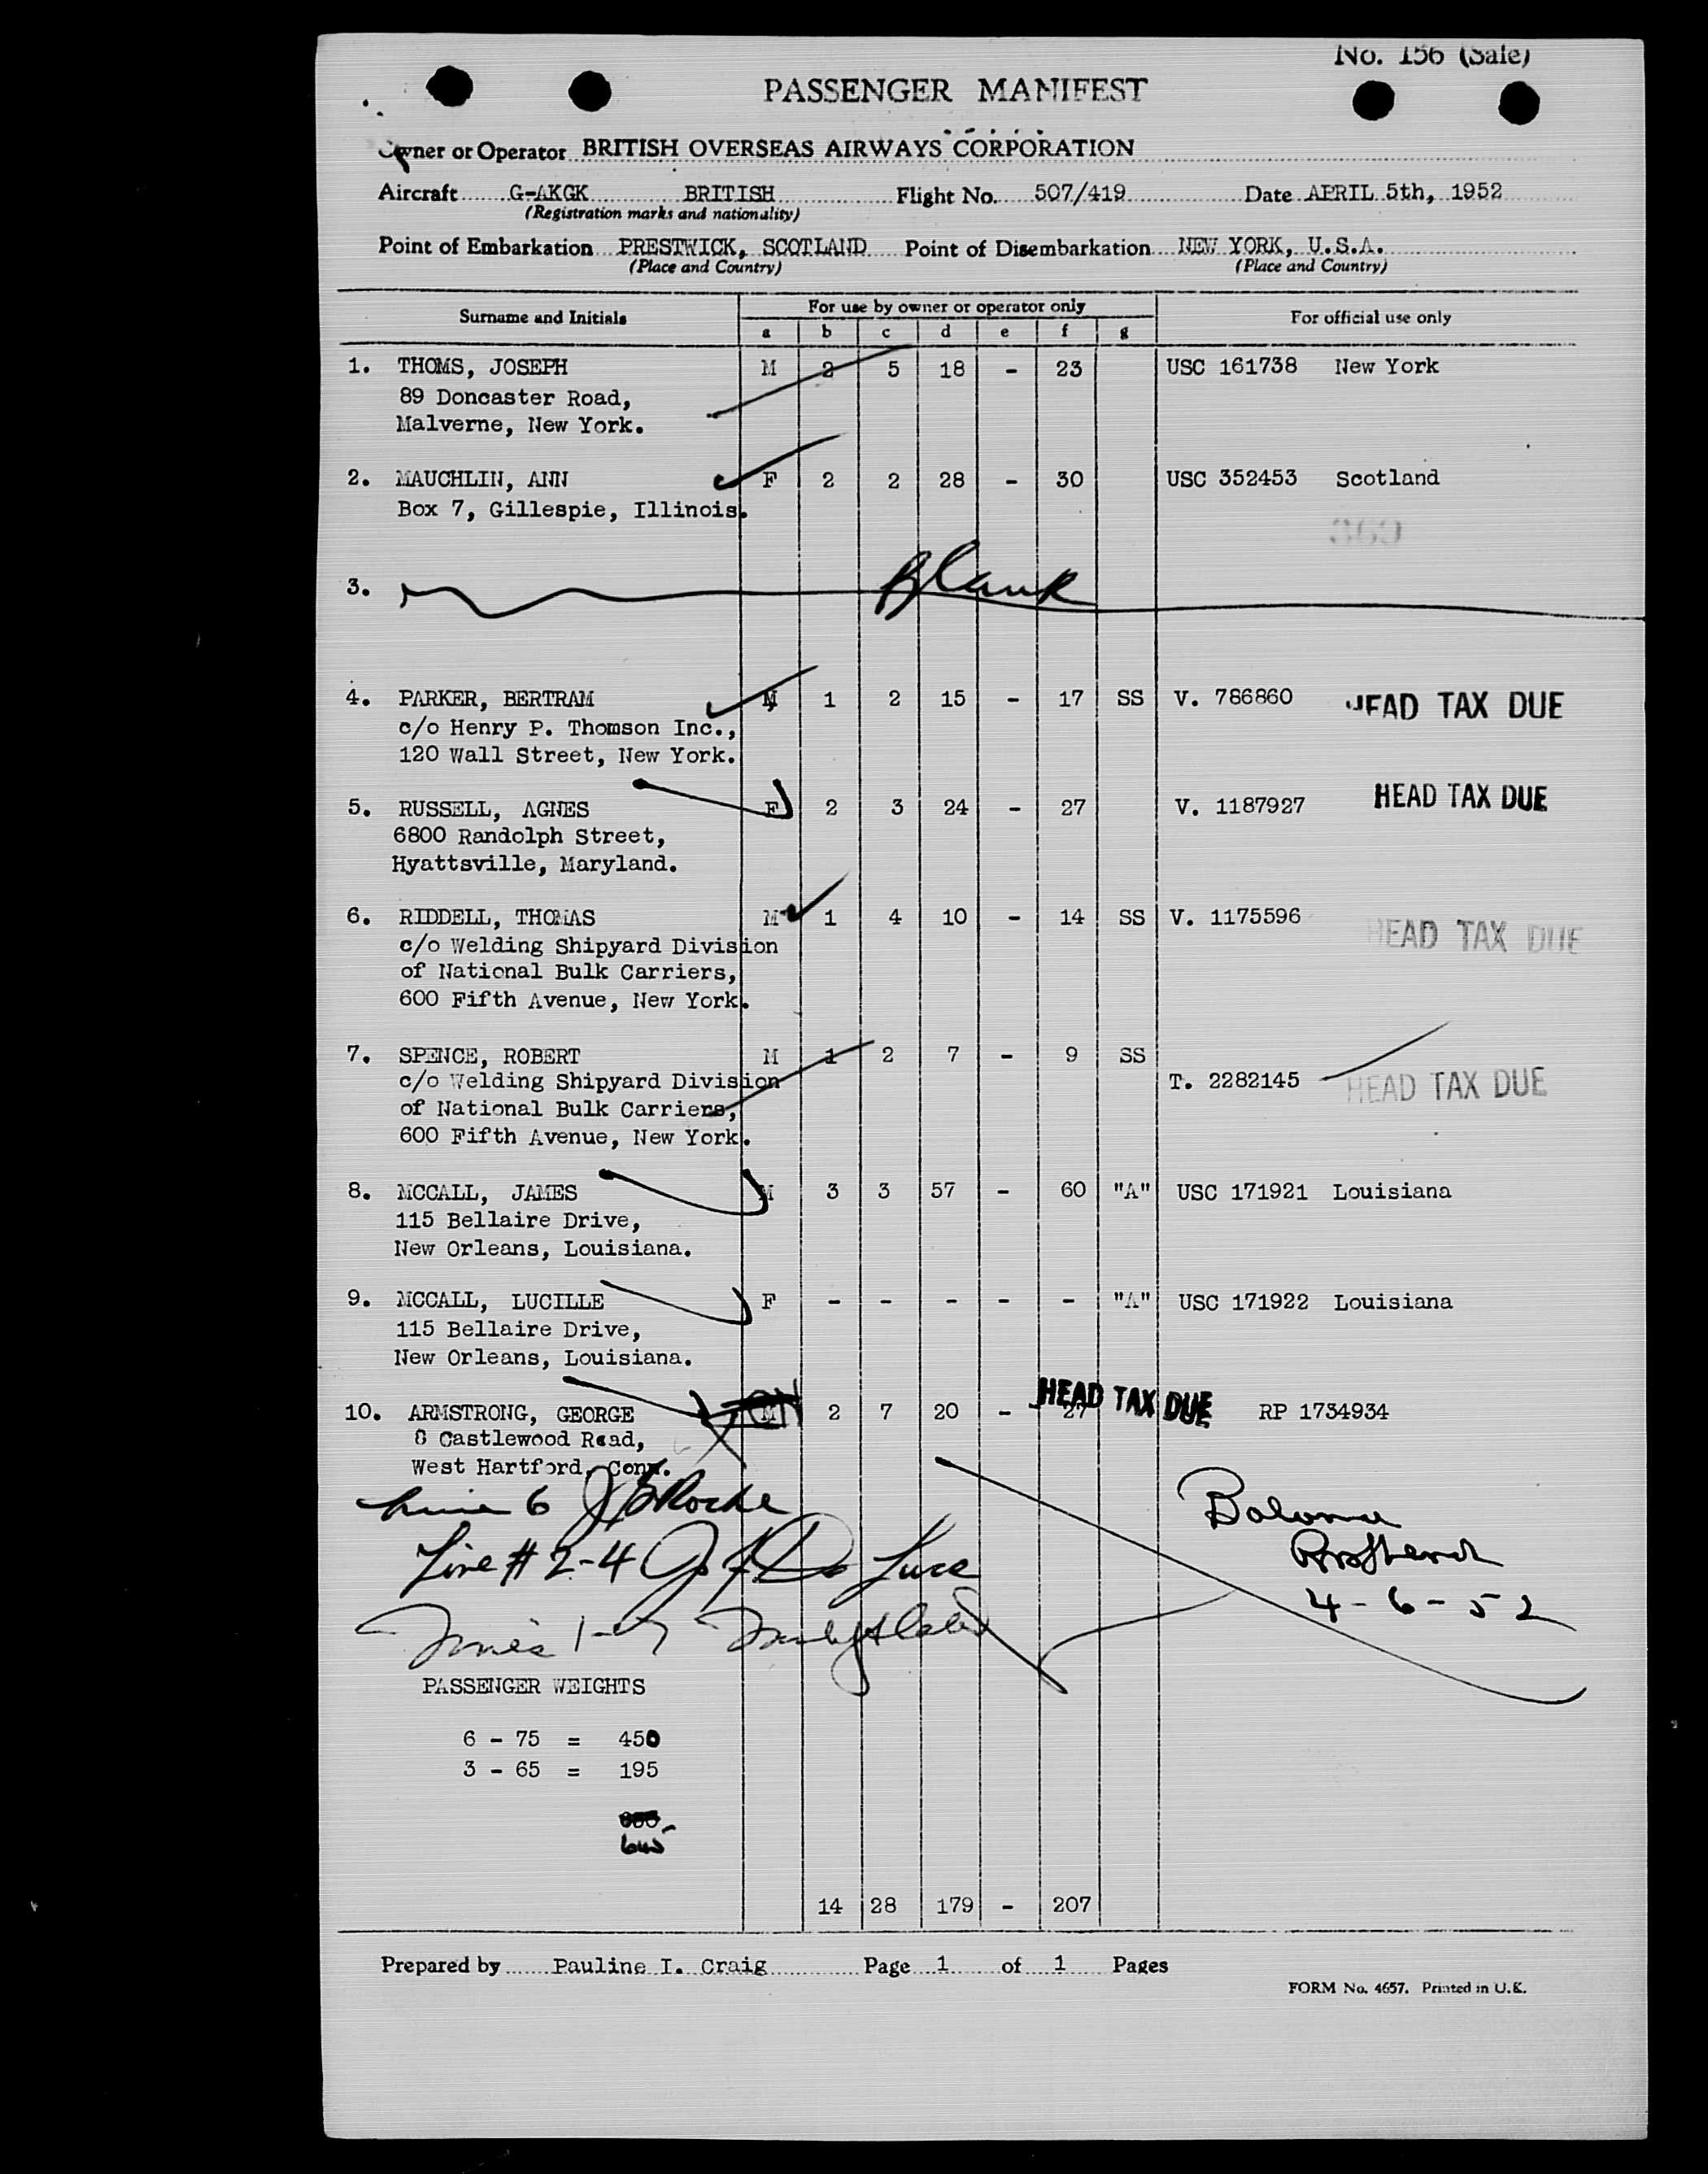 No. 156 (Sale)
PASSENGER MANIFEST
Owner or Operator BRITISH OVERSEAS AIRWAYS CORPORATION
Aircraft G-AKGK BRITISH Flight No. 507/419 Date APRIL 5th, 1952
(Registration marks and nationality)
Point of Embarkation PRESTWICK, SCOTLAND Point of Disembarkation NEW YORK, U.S.A.
(Place and Country) (Place and Country)
Surname and Initials For use by owner or operator only For official use only
a b c d e f g
1. THOMS, JOSEPH M 2 5 18 - 23 USC 161738 New York
89 Doncaster Road,
Malverne, New York.
2. MAUCHLIN, ANN F 2 2 28 - 30 USC 352453 Scotland
Box 7, Gillespie, Illinois.
3. Blank
4. PARKER, BERTRAM M 1 2 15 - 17 SS V. 786860 HEAD TAX DUE
c/o Henry P. Thomson Inc.,
120 Wall Street, New York.
5. RUSSELL, AGNES F 2 3 24 - 27 V. 1187927 HEAD TAX DUE
6800 Randolph Street,
Hyattsville, Maryland.
6. RIDDELL, THOMAS M 1 4 10 - 14 SS V. 1175596 HEAD TAX DUE
c/o Welding Shipyard Division
of National Bulk Carriers,
600 Fifth Avenue, New York.
7. SPENCE, ROBERT M 1 2 7 - 9 SS
c/o Welding Shipyard Division T. 2282145 HEAD TAX DUE
of National Bulk Carriers,
600 Fifth Avenue, New York.
8. MCCALL, JAMES M 3 3 57 - 60 "A" USC 171921 Louisiana
115 Bellaire Drive,
New Orleans, Louisiana.
9. MCCALL, LUCILLE F - - - - - "A" USC 171922 Louisiana
115 Bellaire Drive,
New Orleans, Louisiana.
10. ARMSTRONG, GEORGE M 2 7 20 - 27 HEAD TAX DUE RP 1734934
8 Castlewood Road,
West Hartford, Conn.
Line 6
Line # 2-4
4-6-52
PASSENGER WEIGHTS
6 - 75 = 450
3 - 65 = 195
645
14 28 179 - 207
Prepared by Pauline I. Craig Page 1 of 1 Pages
FORM No. 4657. Printed in U.K.